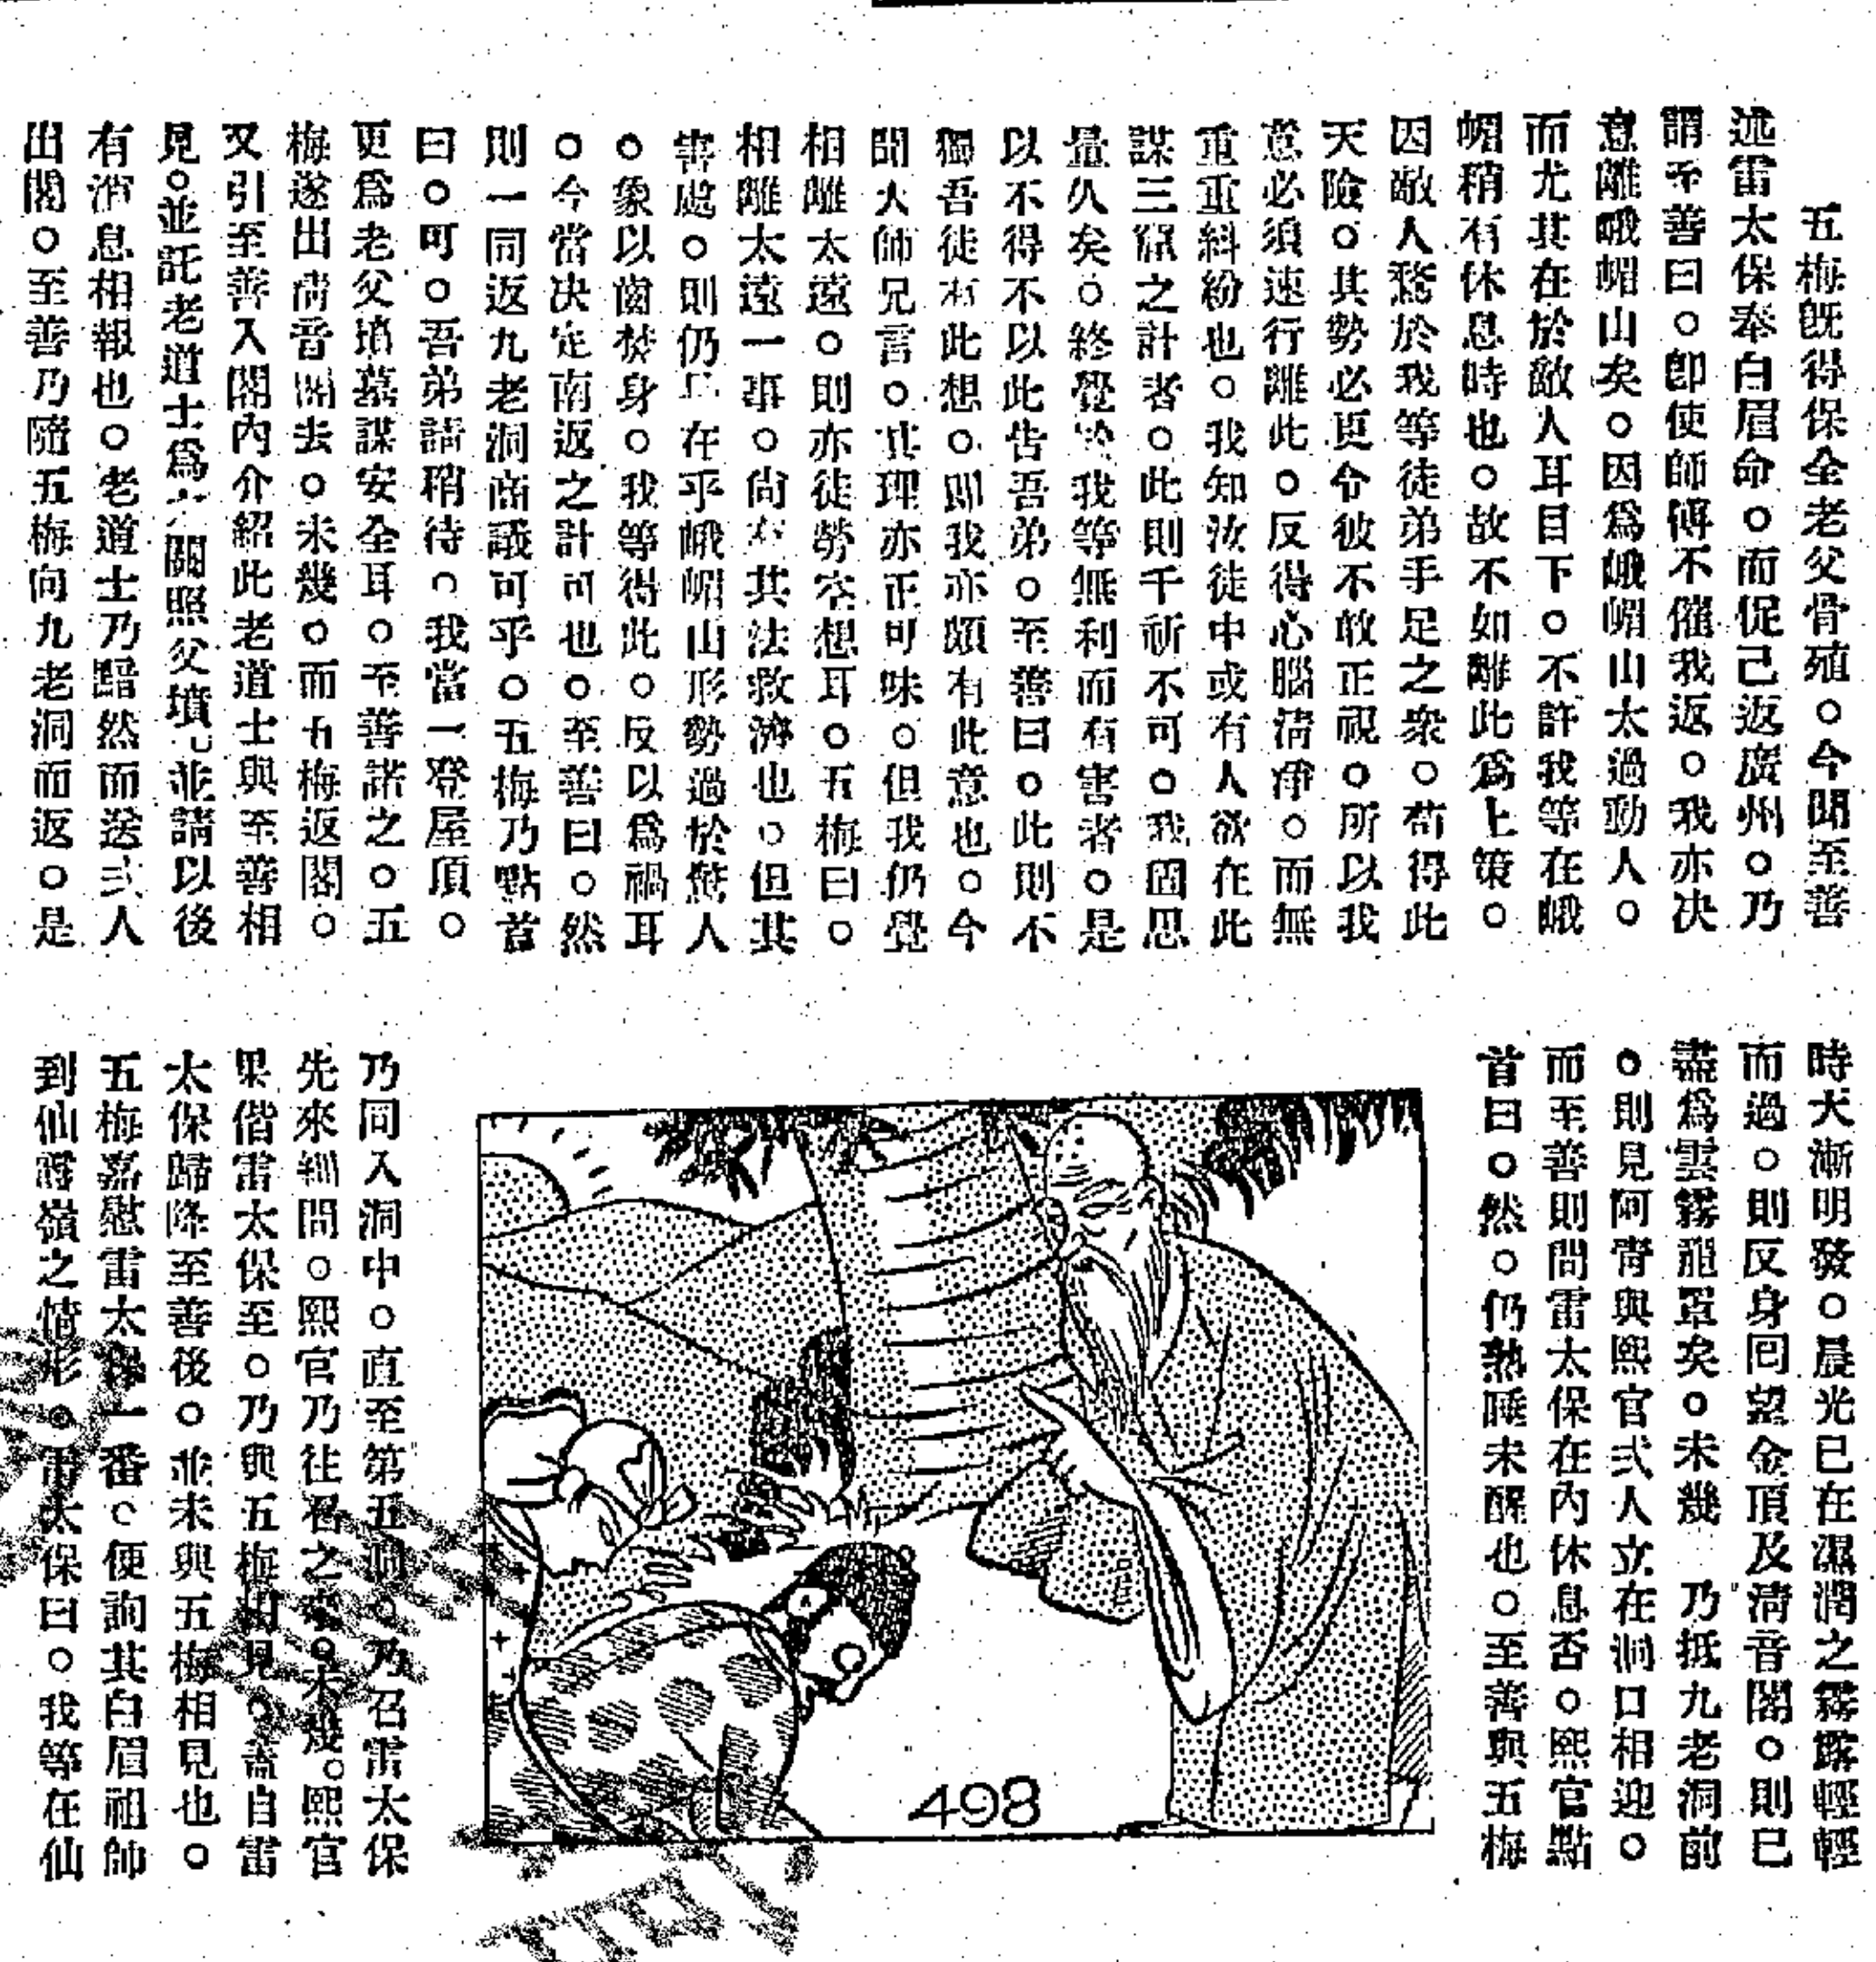 五梅旣得保全老父骨殖。今聞至善
述雷太保奉白眉命。而促己返廣州。乃
謂至善曰。卽使師傅不催我返。我亦决
意離峨嵋山矣。因爲峨嵋山太過動人。
而尤其在於敵人耳目下。不許我等在峨
嵋稍有休息時也。故不如離此爲上策。
因敵人驚於我等徒弟手足之衆。苟得此
天險。其勢必更令彼不敢正視。所以我
意必須速行離此。反得心腦淸凈。而無
重重糾紛也。我知汝徒中或有人欲在此
謀三窟之計者。此則千祈不可。我固思
量久矣。終覺於我等無利而有害者。是
以不得不以此告吾弟。至善曰。此則不
獨吾徒有此想。卽我亦頗有此意也。今
聞大師兄言。其理亦正可味。但我仍覺
相離太遠。則亦徒勞空想耳。五梅曰。
相離太遠一事。尙有其法救濟也。但其
害處。則仍 在乎峨嵋山形勢過於驚人
。象以齒焚身。我等得此。反以爲禍耳
。今當决定南返之計可也。至善曰。然
則一同返九老洞商議可乎。五梅乃點首
曰。可。吾弟請稍待。我當一登屋頂。
更爲老父墳墓謀安全耳。至善諾之。五
梅遂出淸音閣去。未幾。而五梅返閣。
又引至善入閣內介紹此老道士與至善相
見。並託老道士爲 關照父墳。並請以後
有消息相報也。老道士乃黯然而送弍人
出閣。至善乃隨五梅向九老洞而返。是
時天漸明發。晨光已在濕潤之霧露輕輕
而過。則反身回望金頂及淸音閣。則已
盡爲雲霧龍罩矣。未幾 乃抵九老洞前
。則見阿靑與熙官弍人立在洞口相迎。
而至善則問雷太保在內休息否。熙官點
首曰。然。仍熟睡未醒也。至善與五梅
乃同入洞中。直至第五洞。乃召雷太保
先來細問。熙官乃往召之來。未幾。熙官
果偕雷太保至。乃與五梅相見。蓋自雷
太保歸降至善後。並未與五梅相見也。
五梅嘉慰雷太保一番。便詢其白眉祖師
到仙霞嶺之情形。雷太保曰。我等在仙
498